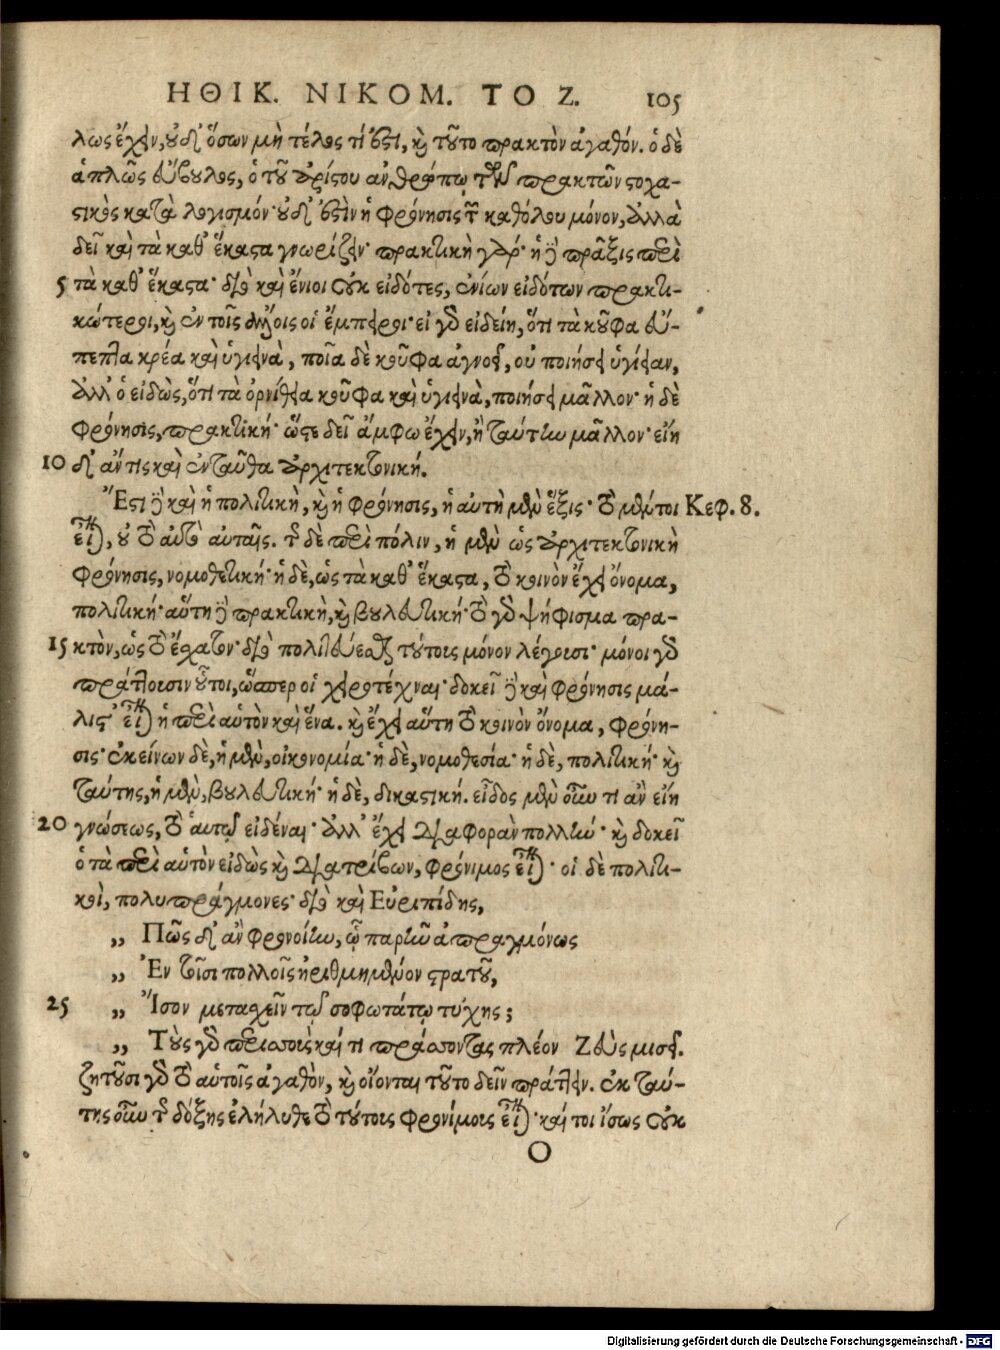 ΗΘΙΚ. ΝΙΚΟΜ. ΤΟ Ζ. 105
λως ἔχειν, οὐδ' ὅσων μὴ τέλος τί ἐστι, καὶ τοῦτο πρακτὸν ἀγαθόν. ὁ δὲ
ἁπλῶς εὔβουλος, ὁ τοῦ ἀρίστου ἀνθρώπῳ τῶν πρακτῶν στοχα-
στικὸς κατὰ λογισμόν· οὐδ' ἐστὶν ἡ φρόνησις τῶν καθόλου μόνον, ἀλλὰ
δεῖ καὶ τὰ καθ' ἕκαστα γνωρίζειν· πρακτικὴ γάρ· ἡ δὲ πρᾶξις περὶ
5 τὰ καθ' ἕκαστα· διὸ καὶ ἔνιοι οὐκ εἰδότες, ἐνίων εἰδότων πρακτι-
κώτεροι, καὶ ἐν τοῖς ἄλλοις οἱ ἔμπειροι· εἰ γὰρ εἰδείη, ὅτι τὰ κοῦφα εὔ-
πεπτα κρέα καὶ ὑγιεινὰ, ποῖα δὲ κοῦφα ἀγνοεῖ, οὐ ποιήσει ὑγίειαν,
ἀλλ' ὁ εἰδὼς, ὅτι τὰ ὀρνίθεια κοῦφα καὶ ὑγιεινὰ, ποιήσει μᾶλλον· ἡ δὲ
φρόνησις, πρακτική· ὥστε δεῖ ἄμφω ἔχειν, ἢ ταύτην μᾶλλον· εἴη
10 δ' ἄν τις καὶ ἐνταῦθα ἀρχιτεκτονική.
Ἔστι δὲ καὶ ἡ πολιτικὴ, καὶ ἡ φρόνησις, ἡ αὐτὴ μὲν ἕξις· τὸ μέντοι Κεφ. 8.
εἶναι, οὐ τὸ αὐτὸ αὐταῖς. τῆς δὲ περὶ πόλιν, ἡ μὲν ὡς ἀρχιτεκτονικὴ
φρόνησις, νομοθετική· ἡ δὲ, ὡς τὰ καθ' ἕκαστα, τὸ κοινὸν ἔχει ὄνομα,
πολιτική· αὕτη δὲ πρακτικὴ, καὶ βουλευτική· τὸ γὰρ ψήφισμα πρα-
15 κτὸν, ὡς τὸ ἔσχατον· διὸ πολιτεύεσθαι τούτους μόνον λέγουσι· μόνοι γὰρ
πράττουσιν οὗτοι, ὥσπερ οἱ χειροτέχναι· δοκεῖ δὲ καὶ φρόνησις μά-
λιστ' εἶναι ἡ περὶ αὑτὸν καὶ ἕνα. καὶ ἔχει αὕτη τὸ κοινὸν ὄνομα, φρόνη-
σις· ἐκείνων δὲ, ἡ μὲν, οἰκονομία· ἡ δὲ, νομοθεσία· ἡ δὲ, πολιτική· καὶ
ταύτης, ἡ μὲν, βουλευτική· ἡ δὲ, δικαστική. εἶδος μὲν οὖν τι ἂν εἴη
20 γνώσεως, τὸ αὑτῷ εἰδέναι· ἀλλ' ἔχει διαφορὰν πολλήν· καὶ δοκεῖ
ὁ τὰ περὶ αὑτὸν εἰδὼς καὶ διατρίβων, φρόνιμος εἶναι· οἱ δὲ πολιτι-
κοὶ, πολυπράγμονες· διὸ καὶ Εὐριπίδης,
„ Πῶς δ' ἂν φρονοίην, ᾧ παρῆν ἀπραγμόνως
„ Ἐν τοῖσι πολλοῖς ἠριθμημένον στρατοῦ,
25 „ Ἴσον μετασχεῖν τῷ σοφωτάτῳ τύχης;
„ Τοὺς γὰρ περισσοὺς καί τι πράσσοντας πλέον Ζεὺς μισεῖ.
ζητοῦσι γὰρ τὸ αὑτοῖς ἀγαθὸν, καὶ οἴονται τοῦτο δεῖν πράττειν. ἐκ ταύ-
της οὖν τῆς δόξης ἐλήλυθε τὸ τούτους φρονίμους εἶναι· καί τοι ἴσως οὐκ
O
Digitalisierung gefördert durch die Deutsche Forschungsgemeinschaft - DFG